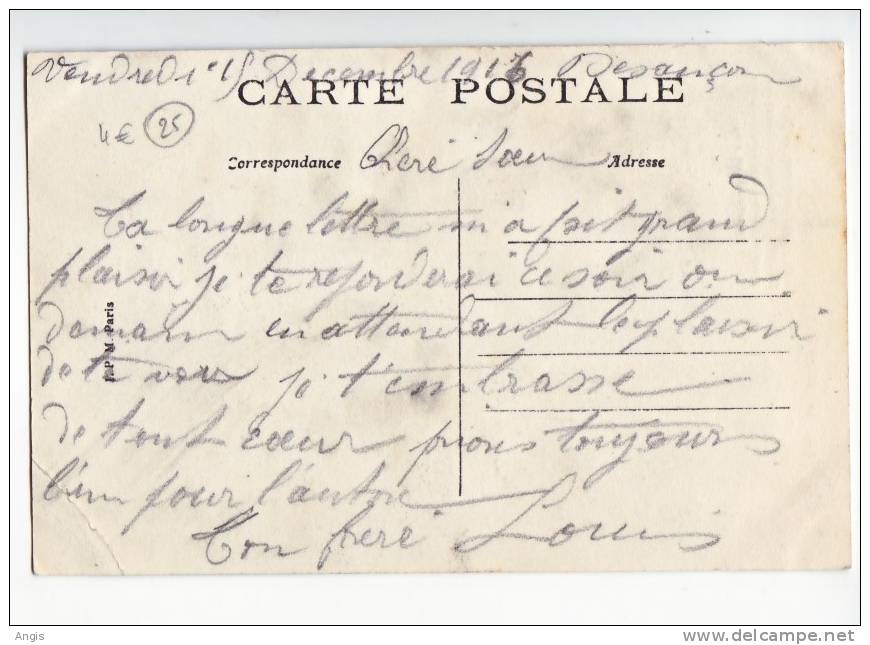 Vendredi 15 Décembre 1916 Besançon
CARTE POSTALE
4€ 25
Correspondance Chere Sœur Adresse
Ta longue lettre m'a fait grand
plaisir je te reponderai ce soir ou
demain en attendant le plaisir
de te voir je t'embrasse
de tout cœur prions toujours
l'un pour l'autre
Ton frere Louis
M. Paris
Angis
www.delcampe.net